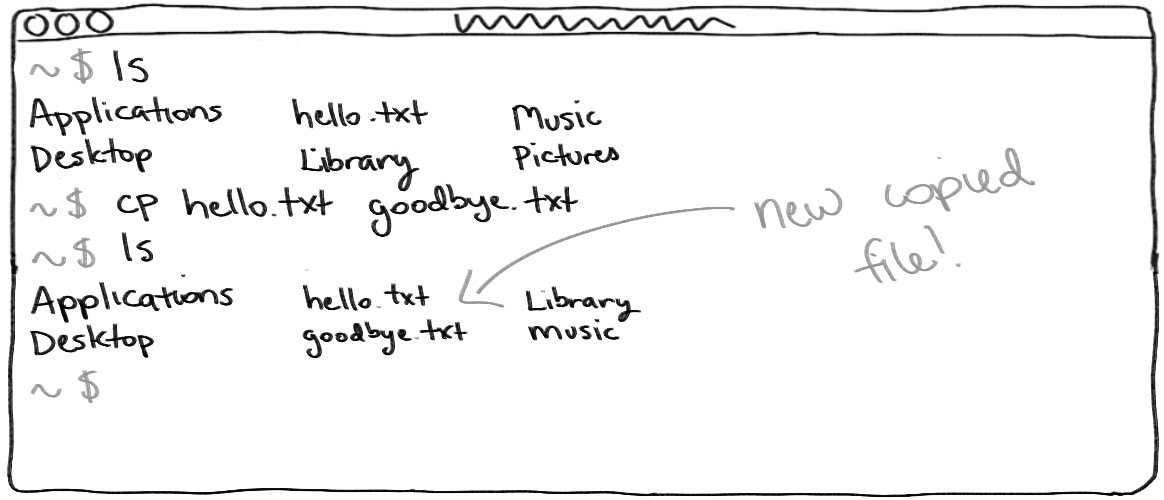 ~ $ ls
Applications hello.txt Music
Desktop Library Pictures
~ $ cp hello.txt goodbye.txt
~ $ ls
Applications hello.txt Library
Desktop goodbye.txt music
~ $
new copied
file!